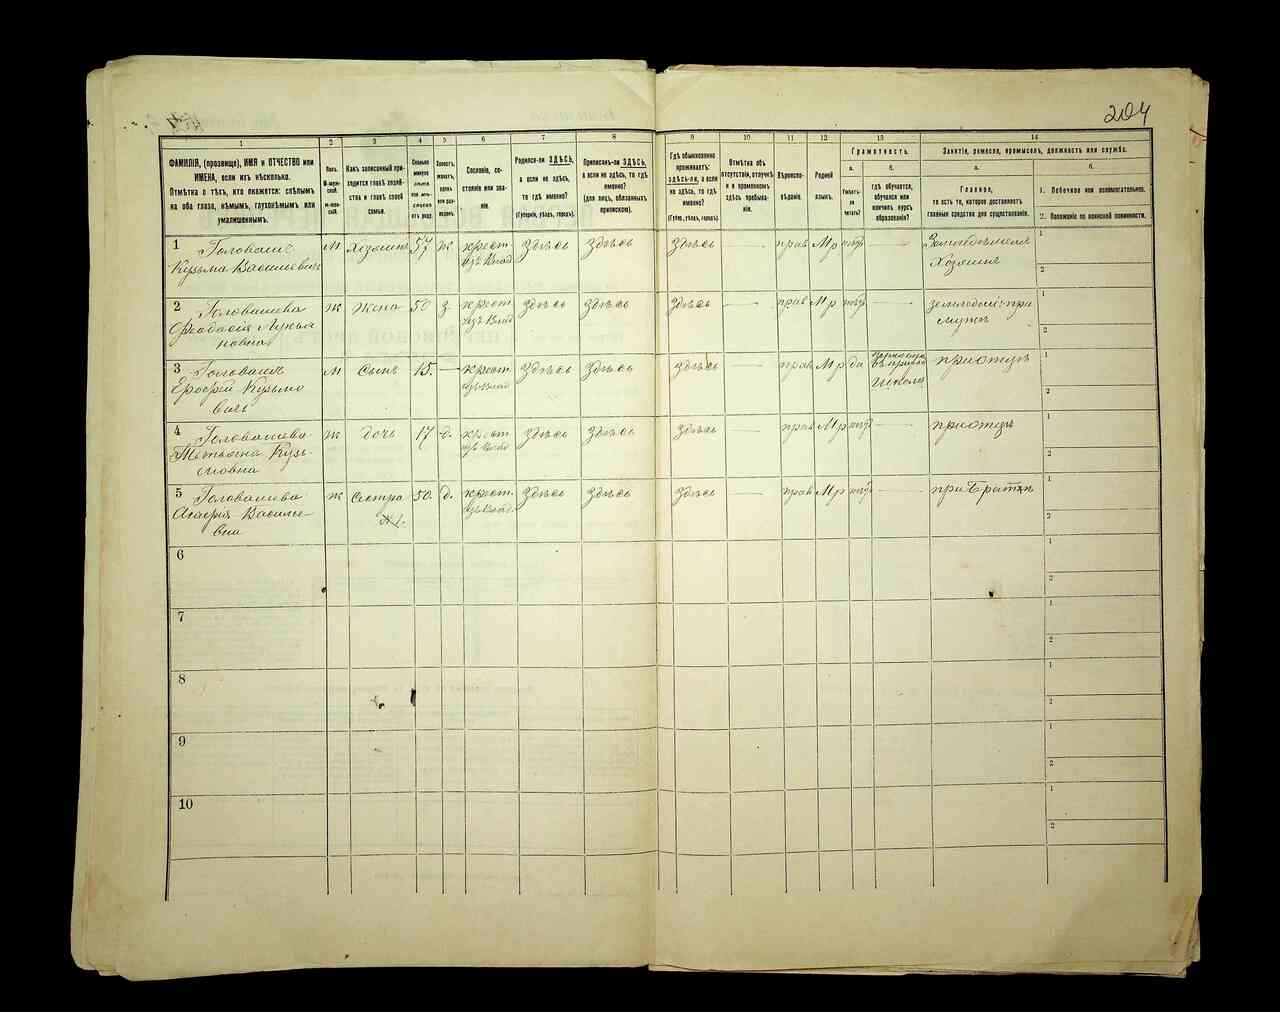 204
1 2 3 4 5 6 7 8 9 10 11 12 13 14
ФАМИЛІЯ, (прозвище), ИМЯ и ОТЧЕСТВО или
ИМЕНА, если ихъ нѣсколько.
Отмѣтка о тѣхъ, кто окажется: слѣпымъ
на оба глаза, нѣмымъ, глухонѣмымъ или
умалишеннымъ.
Полъ.
М-муж-
ской.
Ж-жен-
скій.
Какъ записанный при-
ходится главѣ хозяй-
ства и главѣ своей
семьи.
Сколько
минуло
лѣтъ
отъ роду.
Холостъ,
женатъ,
вдовъ
или раз-
веденъ.
Сословіе, со-
стояніе или зва-
ніе.
Родился-ли ЗДѢСЬ,
а если не здѣсь,
то гдѣ именно?
(Губернія, уѣздъ, городъ).
Приписанъ-ли ЗДѢСЬ,
а если не здѣсь, то гдѣ
именно?
(для лицъ, обязанныхъ
припискою).
Гдѣ обыкновенно
проживаетъ:
здѣсь-ли, а если
не здѣсь, то гдѣ
именно?
(Губерн., уѣздъ, городъ).
Отмѣтка объ
отсутствіи, отлучкѣ
и о временномъ
здѣсь пребыва-
ніи.
Вѣроиспо-
вѣданіе.
Родной
языкъ.
Грамотность.
а.
Умѣетъ-
ли
читать?
б.
гдѣ обучается,
обучался или
кончилъ курсъ
образованія?
Занятіе, ремесло, промыселъ, должность или служба.
а.
Главное,
то есть то, которое доставляетъ
главныя средства для существованія.
б.
1. Побочное или вспомогательное.
2. Положеніе по воинской повинности.
1 Головашъ М Хозяинъ 57 ж. крест. Здѣсь Здѣсь Здѣсь — прав Мр нѣтъ — Земледѣлецъ 1
Кузьма Васильевичъ Хозяинъ 2
2 Головашева Ж Жена 50 з. крест. Здѣсь Здѣсь Здѣсь — прав Мр нѣтъ — земледѣл: при 1
Лукья мужѣ 2
новна
3 Головашъ М Сынъ 15. — крест. Здѣсь Здѣсь Здѣсь — прав Мр да при отцѣ 1
Ерофей Кузьмо школѣ
вичъ 2
4 Головашева Ж дочь 17 д. крест. Здѣсь Здѣсь Здѣсь — прав Мр нѣтъ — при отцѣ 1
Татьяна Кузь-
мовна 2
5 Головашева Ж Сестра 50. д. крест. Здѣсь Здѣсь Здѣсь — прав Мр нѣтъ — при братѣ 1
Агафія Василье- №1.
вна 2
6 1
2
7 1
2
8 1
2
9 1
2
10 1
2